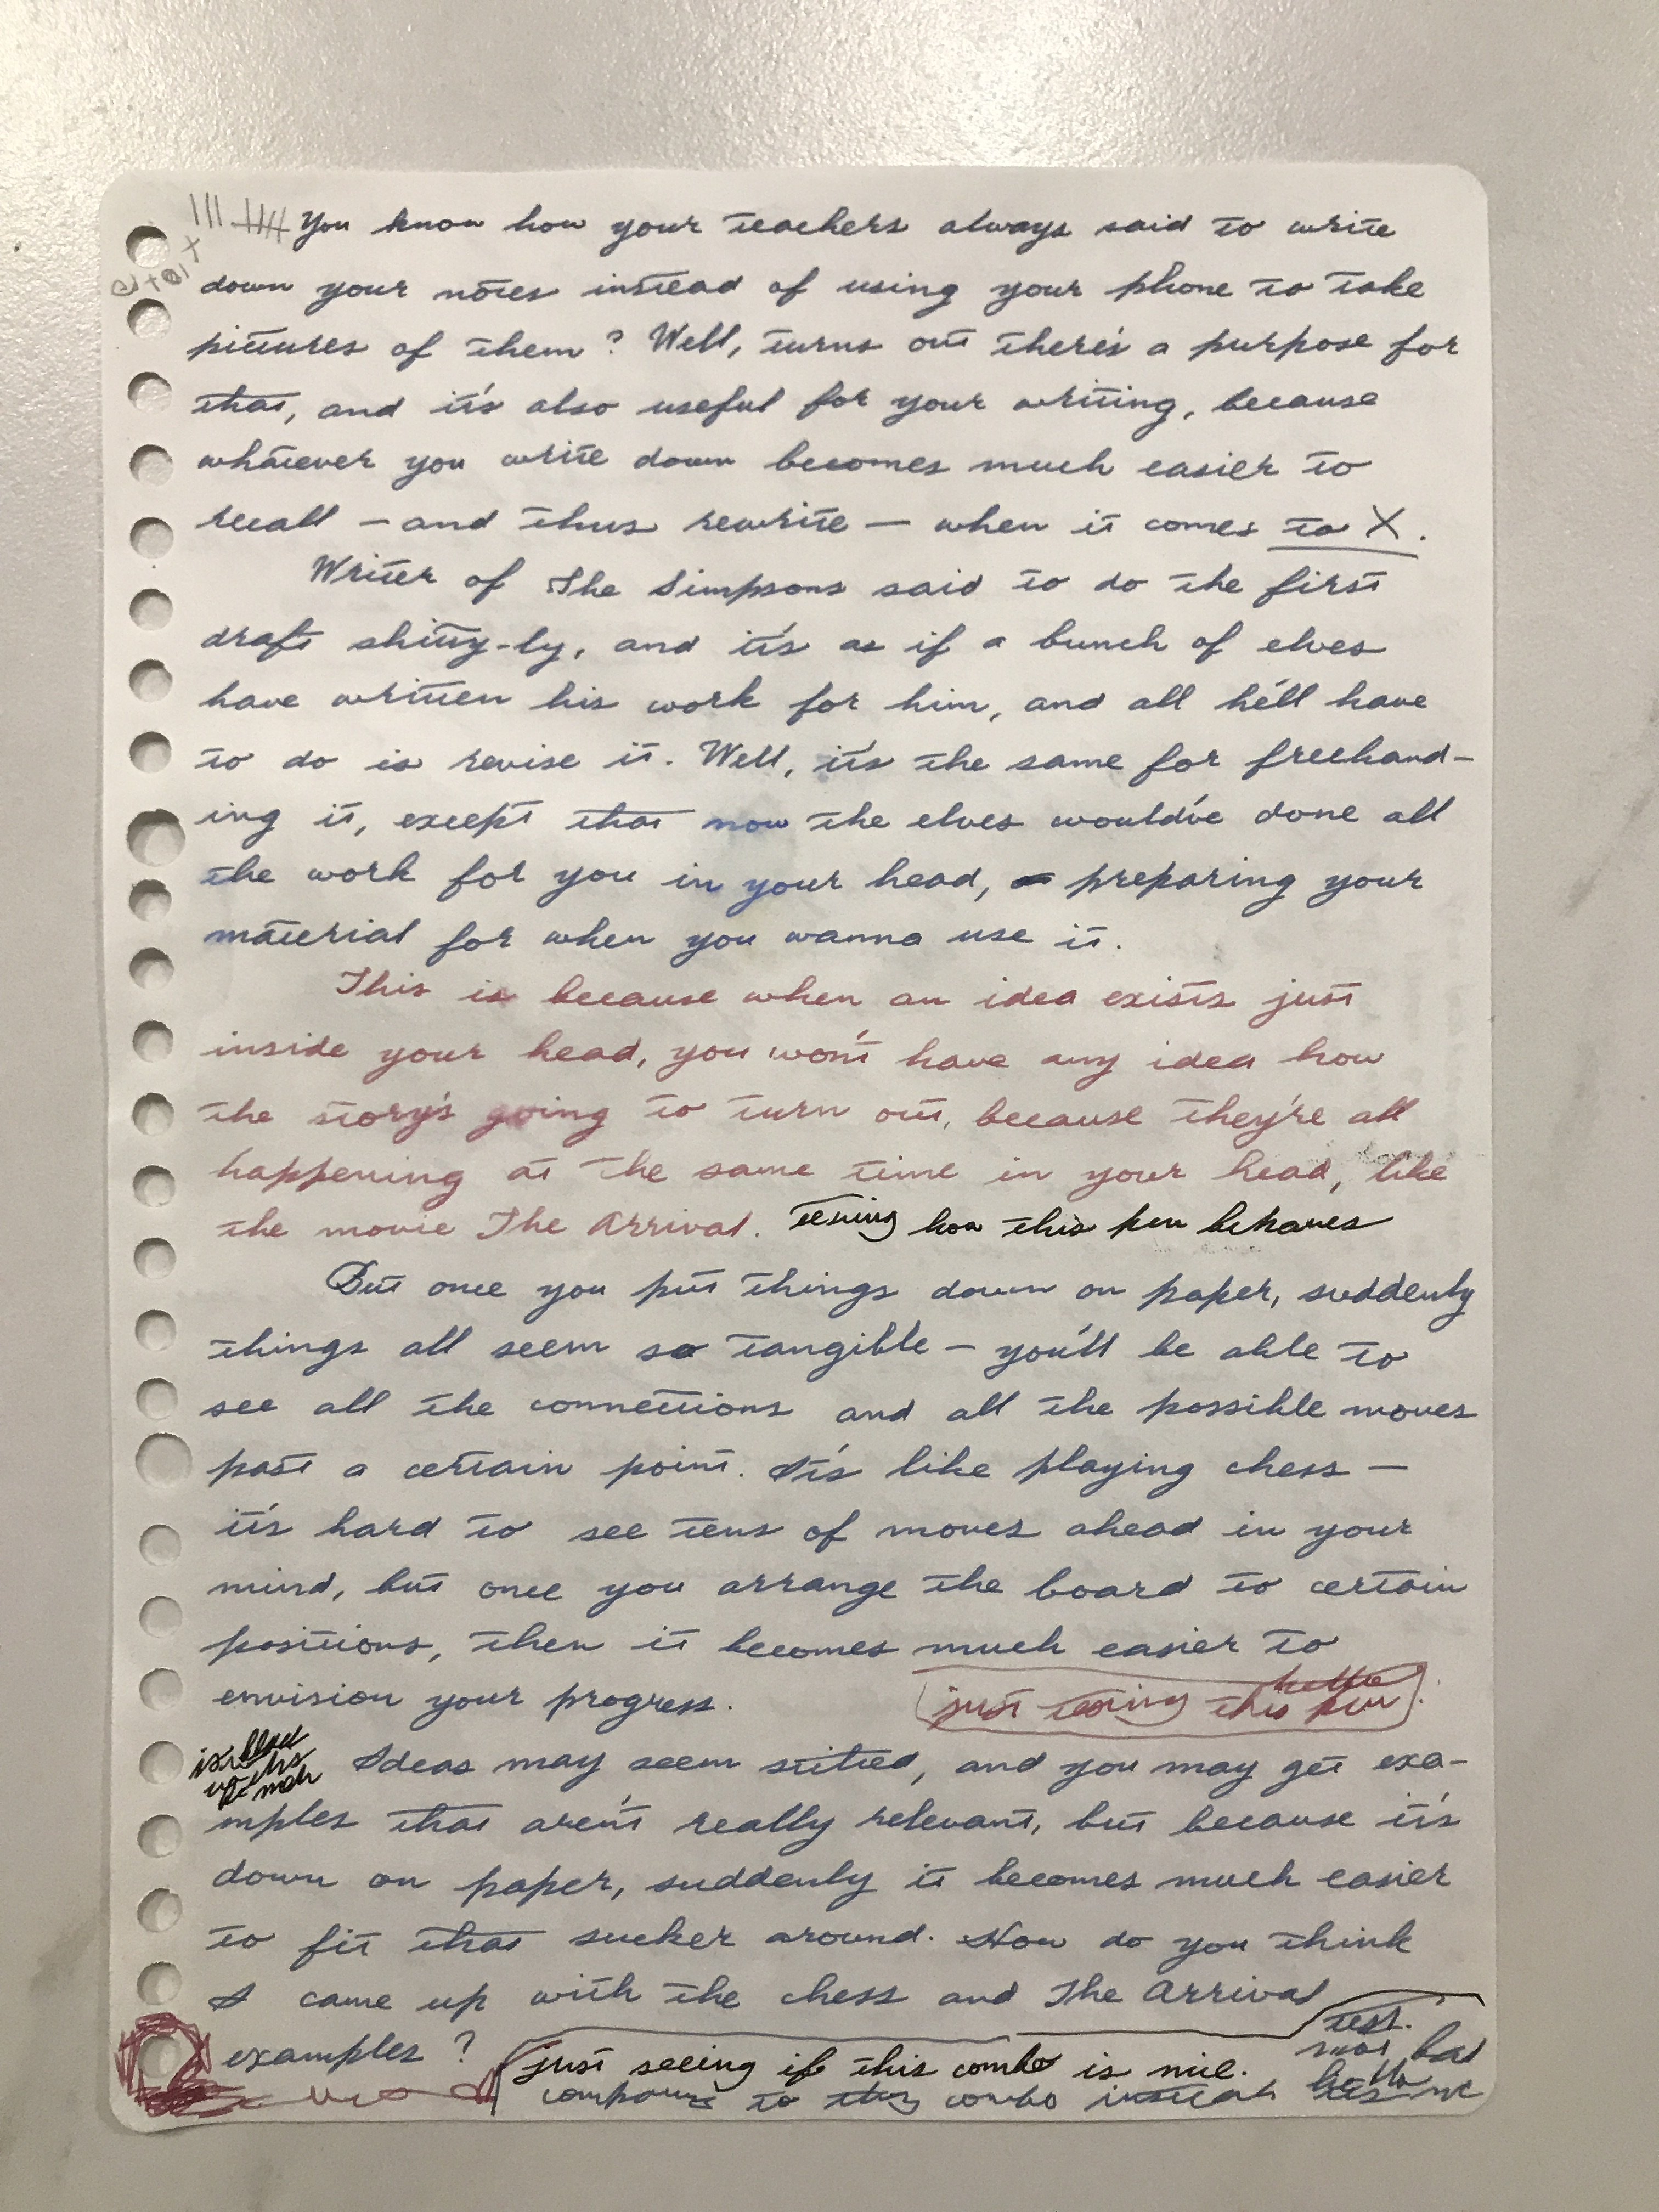 You know how your teachers always said to write
down your notes instead of using your phone to take
pictures of them? Well, turns out there's a purpose for
that, and it's also useful for your writing, because
whatever you write down becomes much easier to
recall – and thus rewrite – when it comes to X.
Writer of The Simpsons said to do the first
draft shitty-ly, and it's as if a bunch of elves
have written his work for him, and all he'll have
to do is revise it. Well, it's the same for freehand-
ing it, except that now the elves would've done all
the work for you in your head, preparing your
material for when you wanna use it.
This is because when an idea exists just
inside your head, you won't have any idea how
the story's going to turn out, because they're all
happening at the same time in your head, like
the movie The Arrival. Testing how this pen behaves
But once you put things down on paper, suddenly
things all seem so tangible – you'll be able to
see all the connections and all the possible moves
past a certain point. It's like playing chess –
it's hard to see tens of moves ahead in your
mind, but once you arrange the board to certain
positions, then it becomes much easier to
envision your progress.
just testing this pen
Ideas may seem stilted, and you may get exa-
mples that aren't really relevant, but because it's
down on paper, suddenly it becomes much easier
to fit that sucker around. How do you think
I came up with the chess and The Arrival
examples?
test.
just seeing if this combo is nice. not bad
compared to this combo instead